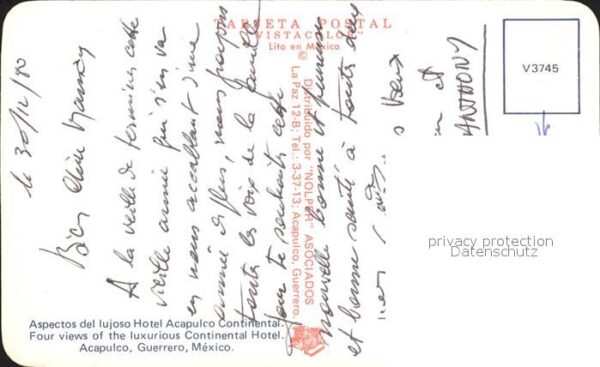 TARJETA POSTAL
"VISTACOLOR"
Lito en México
©
V3745
Distribuido por "NOLPAR" ASOCIADOS
La Paz 12-B; Tel.: 3-37-13; Acapulco, Guerrero.
le 30/12/80
Bien Chère
A la veille de terminer cette
vieille année qui s'en va
en nous accablant d'une
année de plus, nous
toute la voix de la famille
pour te souhaiter cette
nouvelle bonne et
et bonne santé à toute
et
ANTHONY
privacy protection
Datenschutz
Aspectos del lujoso Hotel Acapulco Continental.
Four views of the luxurious Continental Hotel.
Acapulco, Guerrero, México.